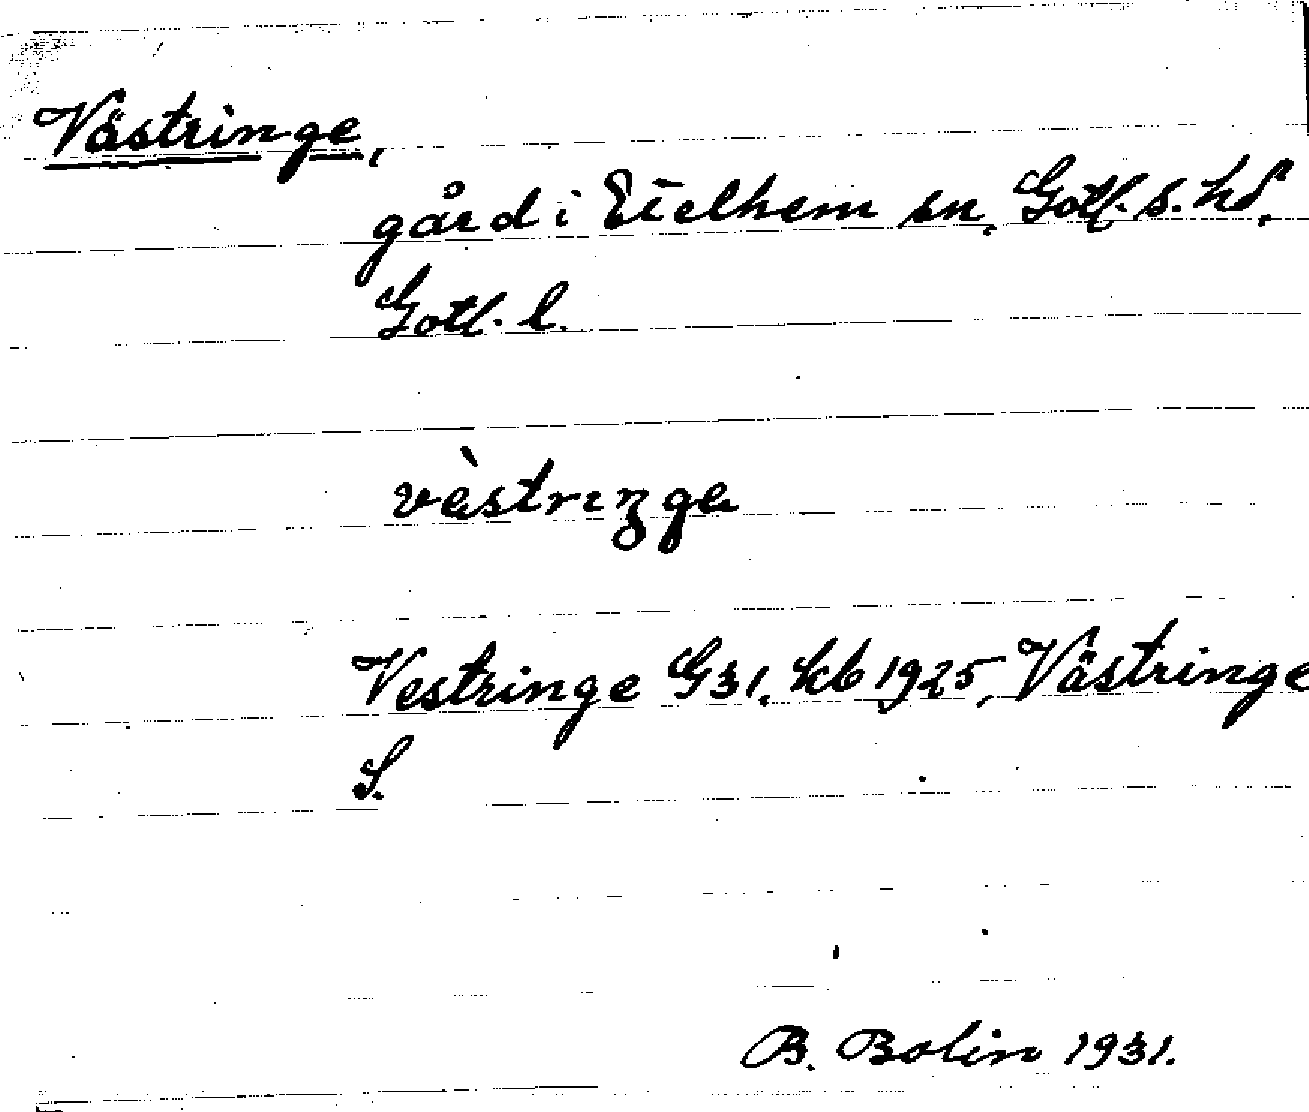 Västringe,
gård i Etelhem sn, Gotl. s. hd,
Gotl. l.
vàstrıŋga
Vestringe G31, kb 1925, Västringe
S.
B. Bolin 1931.